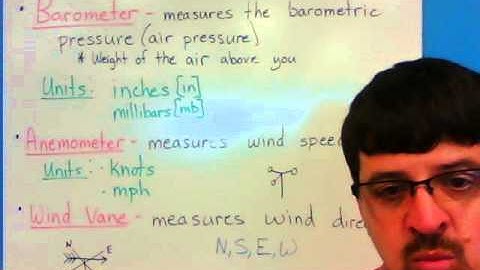 • Barometer - measures the barometric
pressure (air pressure)
* Weight of the air above you
Units: inches [in]
millibars [mb]
• Anemometer - measures wind speed
Units: • Knots
• mph
• Wind Vane - measures wind
N, S, E, W
N E